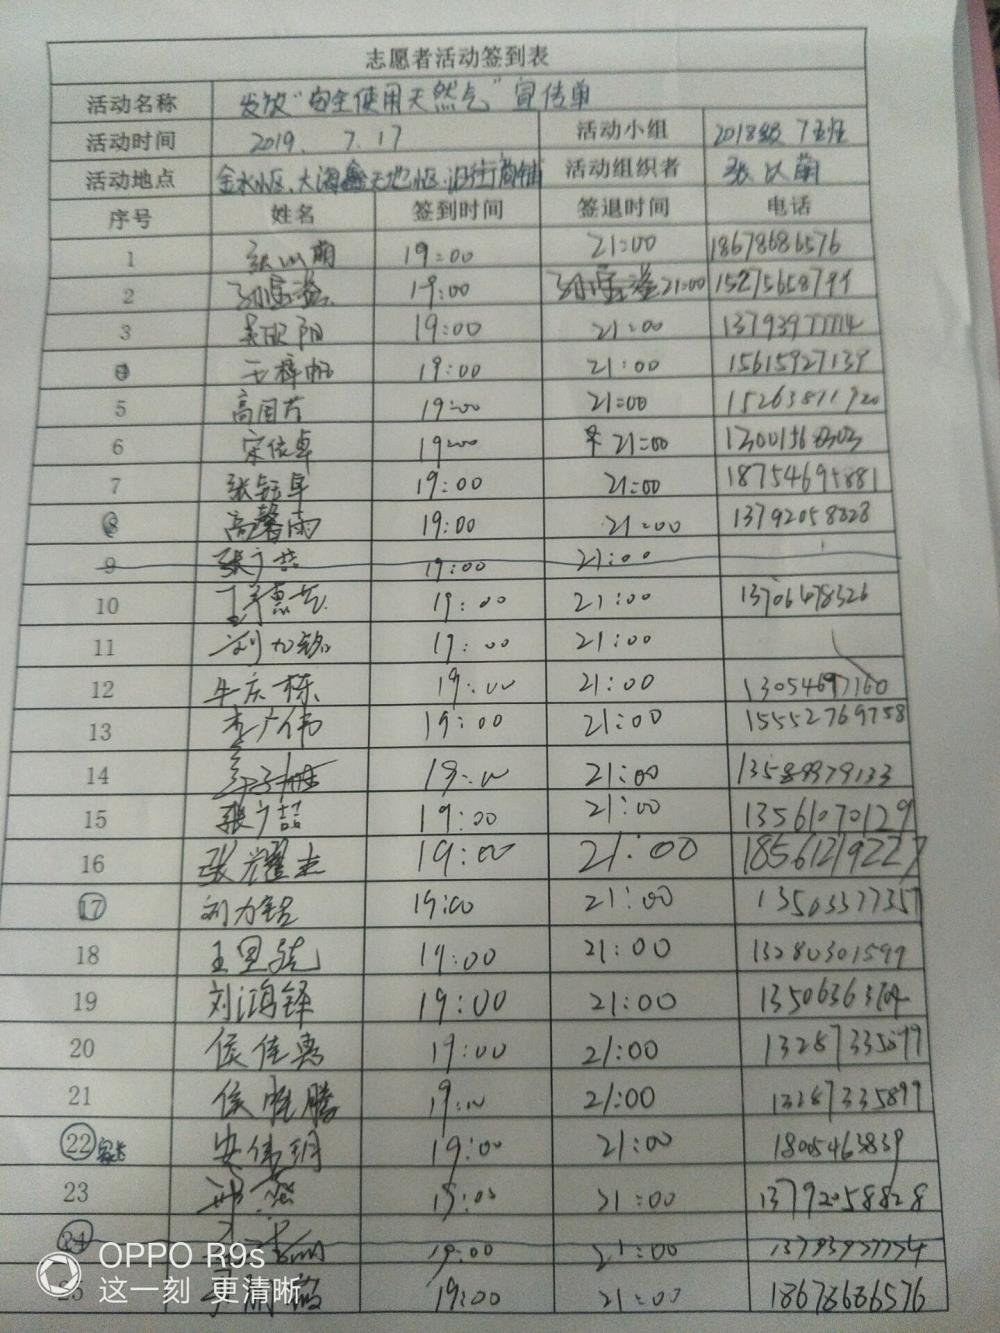 志愿者活动签到表
活动名称 发放"安全使用天然气"宣传单
活动时间 2019. 7.17 活动小组 2018级 7班
活动地点 金水小区、大海鑫天地小区、沿街商铺 活动组织者 张以萌
序号 姓名 签到时间 签退时间 电话
1 张以萌 19:00 21:00 18678686576
2 19:00 21:00 15275658799
3 吴欧阳 19:00 21:00 13793977774
4 王梓帆 19:00 21:00 15615927139
5 高国芳 19:00 21:00 15263811920
6 宋依卓 19:00 21:00
7 张钰卓 19:00 21:00 18754695881
8 高馨雨 19:00 21:00 13792058828
9 张广喆 19:00 21:00
10 19:00 21:00 13706478326
11 刘力铭 19:00 21:00
12 牛庆栋 19:00 21:00 13054697160
13 李广伟 19:00 21:00 15552769758
14 19:00 21:00 13589979133
15 张广喆 19:00 21:00 13561070129
16 张耀杰 19:00 21:00 18561219227
17 刘力铭 19:00 21:00 13503377357
18 王思琬 19:00 21:00 13280301599
19 刘鸿铎 19:00 21:00
20 侯佳惠 19:00 21:00 13287335899
21 侯胜腾 19:00 21:00 13287335899
22 家长 安伟明 19:00 21:00 18005463839
23 19:00 21:00 13792058828
24 19:00 21:00 13793977774
25 19:00 21:00 18678686576
OPPO R9s
这一刻 更清晰